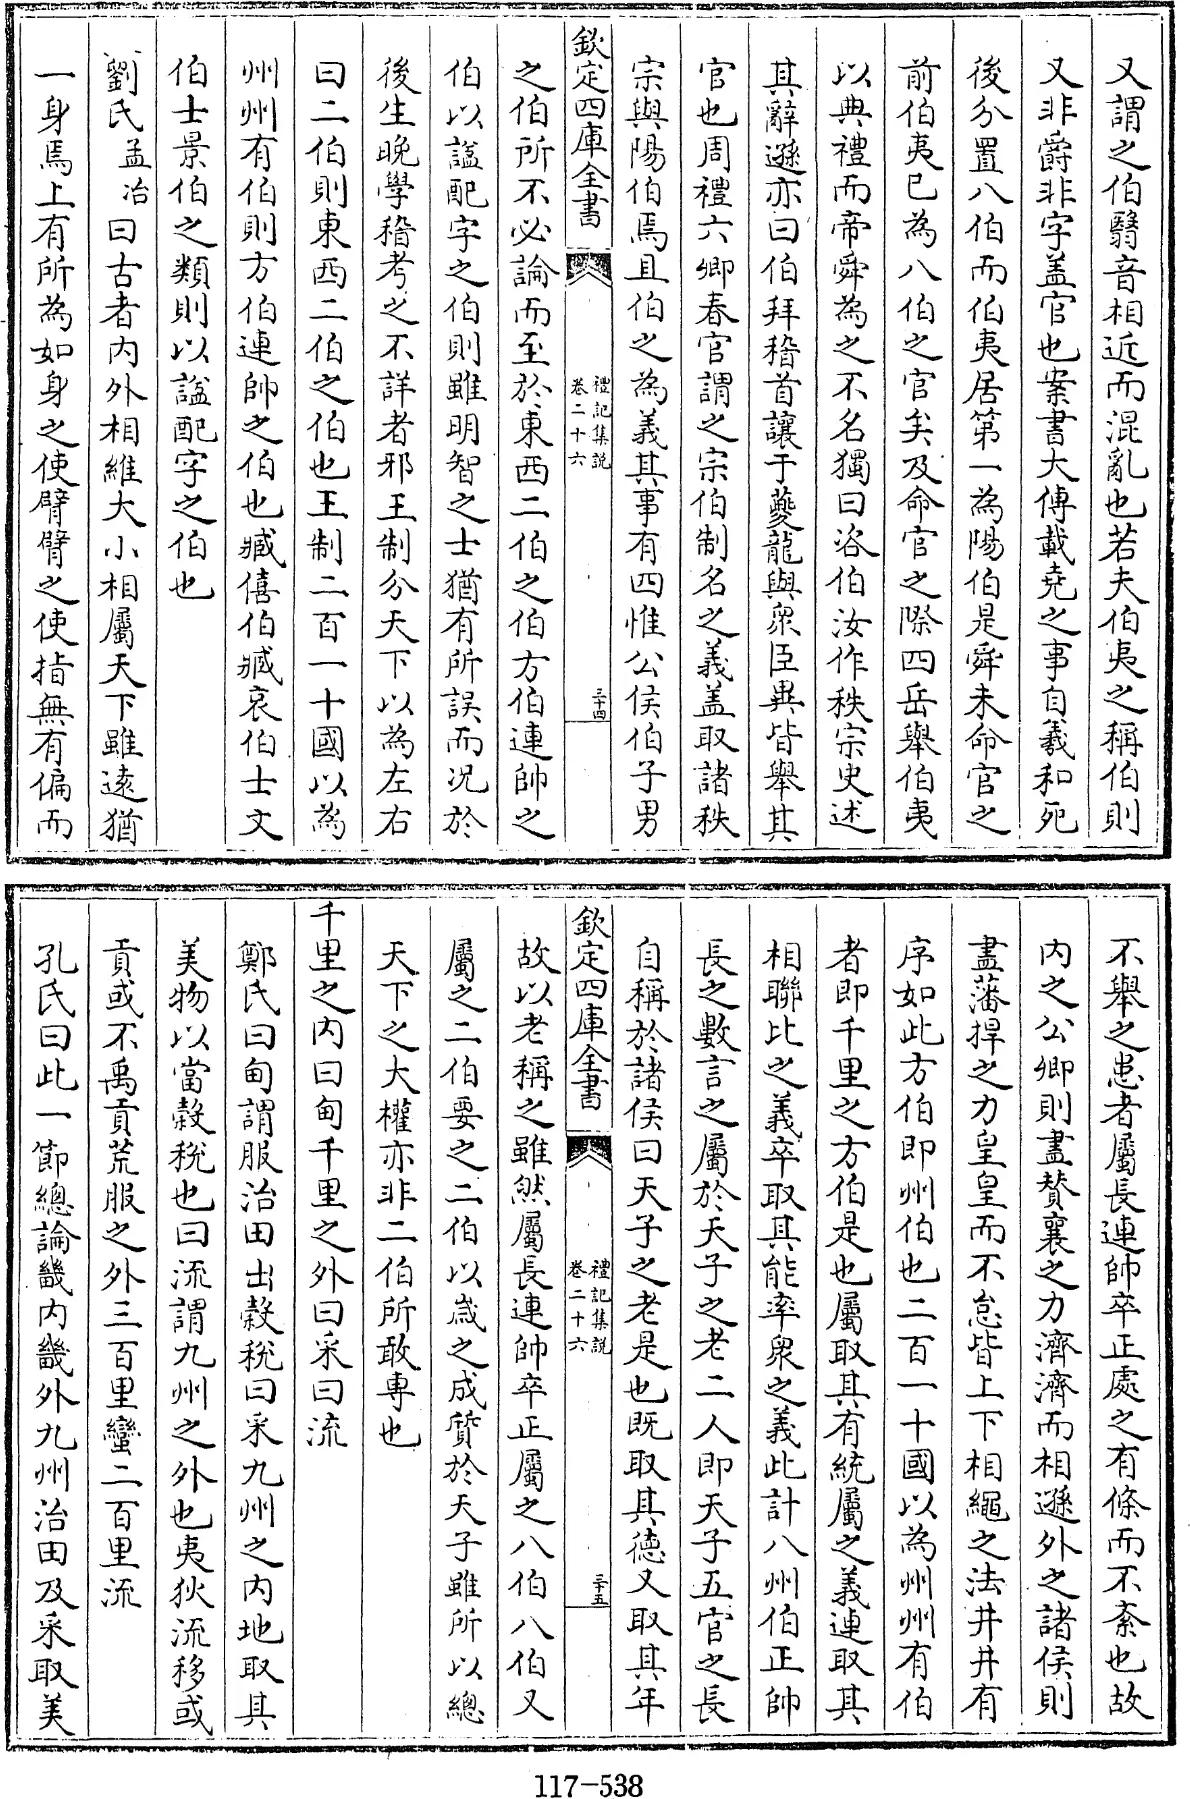 又謂之伯翳音相近而混亂也若夫伯夷之稱伯則
又非爵非字盖官也案書大傳載堯之事自羲和死
後分置八伯而伯夷居第一為陽伯是舜未命官之
前伯夷已為八伯之官矣及命官之際四岳舉伯夷
以典禮而帝舜為之不名獨曰咨伯汝作秩宗史述
其辭遜亦曰伯拜稽首讓于夔龍與衆臣異皆舉其
官也周禮六卿春官謂之宗伯制名之義盖取諸秩
宗與陽伯焉且伯之為義其事有四惟公侯伯子男
欽定四庫全書 禮記集說 卷二十六 三十四
之伯所不必論而至於東西二伯之伯方伯連帥之
伯以謚配字之伯則雖明智之士猶有所誤而况於
後生晚學稽考之不詳者邪王制分天下以為左右
曰二伯則東西二伯之伯也王制二百一十國以為
州州有伯則方伯連帥之伯也臧僖伯臧哀伯士文
伯士景伯之類則以謚配字之伯也
劉氏孟冶曰古者内外相維大小相屬天下雖遠猶
一身焉上有所為如身之使臂臂之使指無有偏而
不舉之患者屬長連帥卒正處之有條而不紊也故
内之公卿則盡賛襄之力濟濟而相遜外之諸侯則
盡藩捍之力皇皇而不怠皆上下相繩之法井井有
序如此方伯即州伯也二百一十國以為州州有伯
者即千里之方伯是也屬取其有統屬之義連取其
相聯比之義卒取其能率衆之義此計八州伯正帥
長之數言之屬於天子之老二人即天子五官之長
自稱於諸侯曰天子之老是也既取其德又取其年
欽定四庫全書 禮記集說 卷二十六 三十五
故以老稱之雖然屬長連帥卒正屬之八伯八伯又
屬之二伯要之二伯以歲之成質於天子雖所以總
天下之大權亦非二伯所敢専也
千里之内曰甸千里之外曰采曰流
鄭氏曰甸謂服治田出穀稅曰采九州之内地取其
美物以當穀稅也曰流謂九州之外也夷狄流移或
貢或不禹貢荒服之外三百里蠻二百里流
孔氏曰此一節總論畿内畿外九州治田及采取美
117-538